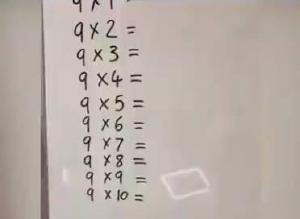 9 x 1 =
9 x 2 =
9 x 3 =
9 x 4 =
9 x 5 =
9 x 6 =
9 x 7 =
9 x 8 =
9 x 9 =
9 x 10 =